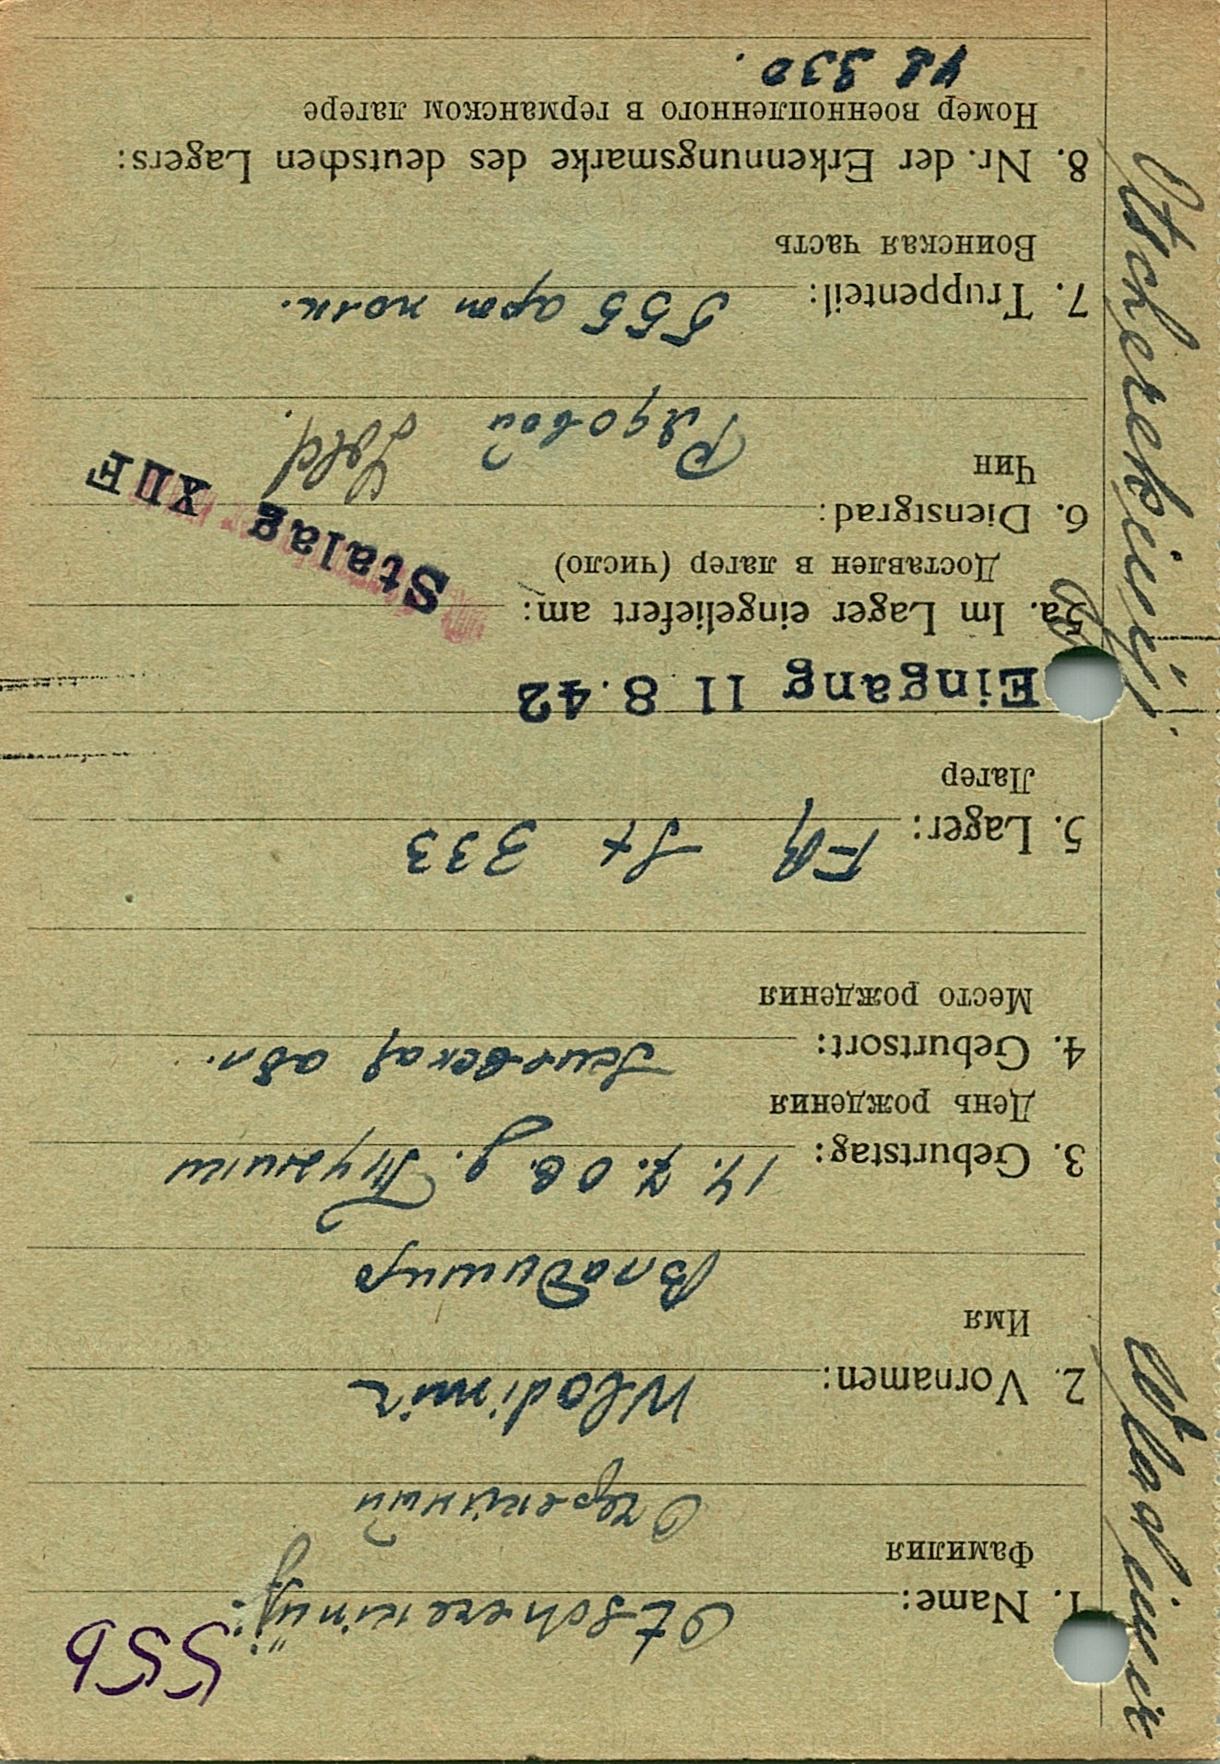 55b
1. Name: Otscherekinüj
Фамилия
Очерекиний
2. Vornamen: Wlodimir
Имя
Владимир
3. Geburtstag: 14. 7. 08. д.
День рождения
4. Geburtsort: обл.
Место рождения
5. Lager: St 333
Лагерь
Eingang 11 8.42
5a. Im Lager eingeliefert am:
Доставлен в лагерь (число)
Stalag XII F
6. Dienstgrad: Sold.
Чин
Рядовой
7. Truppenteil: 555 арт полк.
Воинская часть
8. Nr. der Erkennungsmarke des deutschen Lagers:
Номер военнопленного в германском лагере
42 330.
Wladimir Otscherekinyj